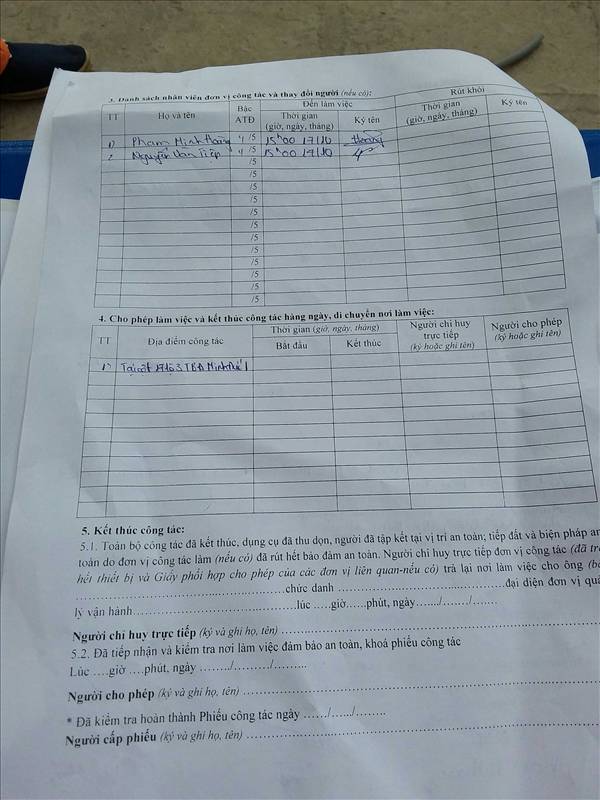 3. Danh sách nhân viên đơn vị công tác và thay đổi người (nếu có):
TT Họ và tên Bậc ATĐ Đến làm việc Rút khỏi
Thời gian (giờ, ngày, tháng) Ký tên Thời gian (giờ, ngày, tháng) Ký tên
1) Phạm Minh Hoàng 4 /5 15h00 17/10 Hoàng
2 Nguyễn Văn Tiếp 4 /5 15h00 17/10
/5
/5
/5
/5
/5
/5
/5
/5
/5
/5
/5
/5
4. Cho phép làm việc và kết thúc công tác hàng ngày, di chuyển nơi làm việc:
TT Địa điểm công tác Thời gian (giờ, ngày, tháng) Người chỉ huy trực tiếp (ký hoặc ghi tên) Người cho phép (ký hoặc ghi tên)
Bắt đầu Kết thúc
1) Tại cột TBA
5. Kết thúc công tác:
5.1. Toàn bộ công tác đã kết thúc, dụng cụ đã thu dọn, người đã tập kết tại vị trí an toàn; tiếp đất và biện pháp an
toàn do đơn vị công tác làm (nếu có) đã rút hết bảo đảm an toàn. Người chỉ huy trực tiếp đơn vị công tác (đã
hết thiết bị và Giấy phối hợp cho phép của các đơn vị liên quan-nếu có) trả lại nơi làm việc cho ông
..............................chức danh ..............................đại diện đơn vị
lý vận hành..............................lúc .....giờ.....phút, ngày....../....../.......
Người chỉ huy trực tiếp (ký và ghi họ, tên) ..............................
5.2. Đã tiếp nhận và kiểm tra nơi làm việc đảm bảo an toàn, khoá phiếu công tác
Lúc ....giờ ....phút, ngày ......../......../.........
Người cho phép (ký và ghi họ, tên) ..............................
* Đã kiểm tra hoàn thành Phiếu công tác ngày ....../....../........
Người cấp phiếu (ký và ghi họ, tên) ..............................